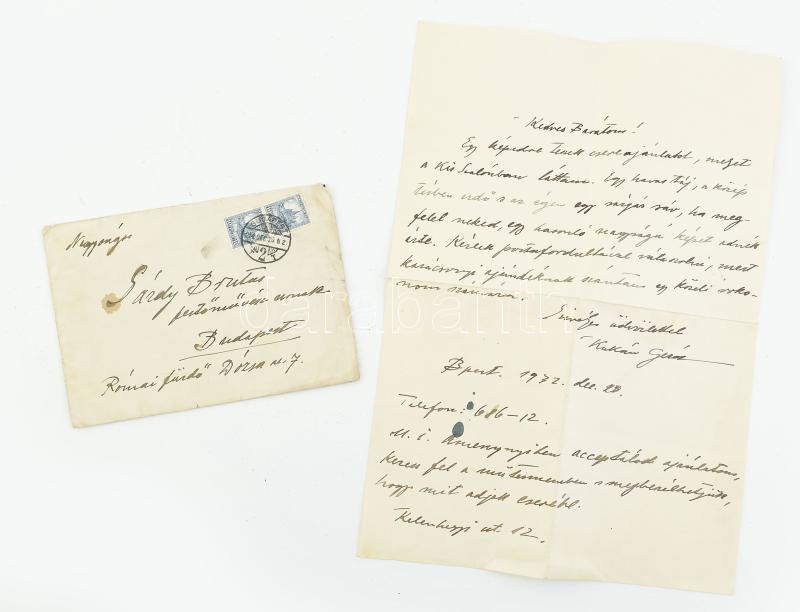 Nagyságos
Sárdy Brutus
festőművész urnak
Budapest
Római fürdő Dózsa u. 7.
BUDAPEST
Kedves Barátom!
Egy képedre teszek csereajánlatot, melyet
a Kis Szalónban láttam. Egy havas táj, a közép
térben erdő s az égen egy sárgás sáv, ha meg-
felel neked, egy hasonló nagyságú képet adnék
érte. Kérlek postafordultával válaszolni, mert
karácsonyi ajándéknak szántam egy közeli roko-
nom számára.
Szívélyes üdvözlettel
Kukán Géza
Bpest. 1932. dec.
Telefon: 686-12.
U. i. Amennyiben acceptálod ajánlatom,
keress fel a műteremben s megbeszélhetjük,
hogy mit adjak cserébe.
Kelenhegyi út. 12.
darabanth